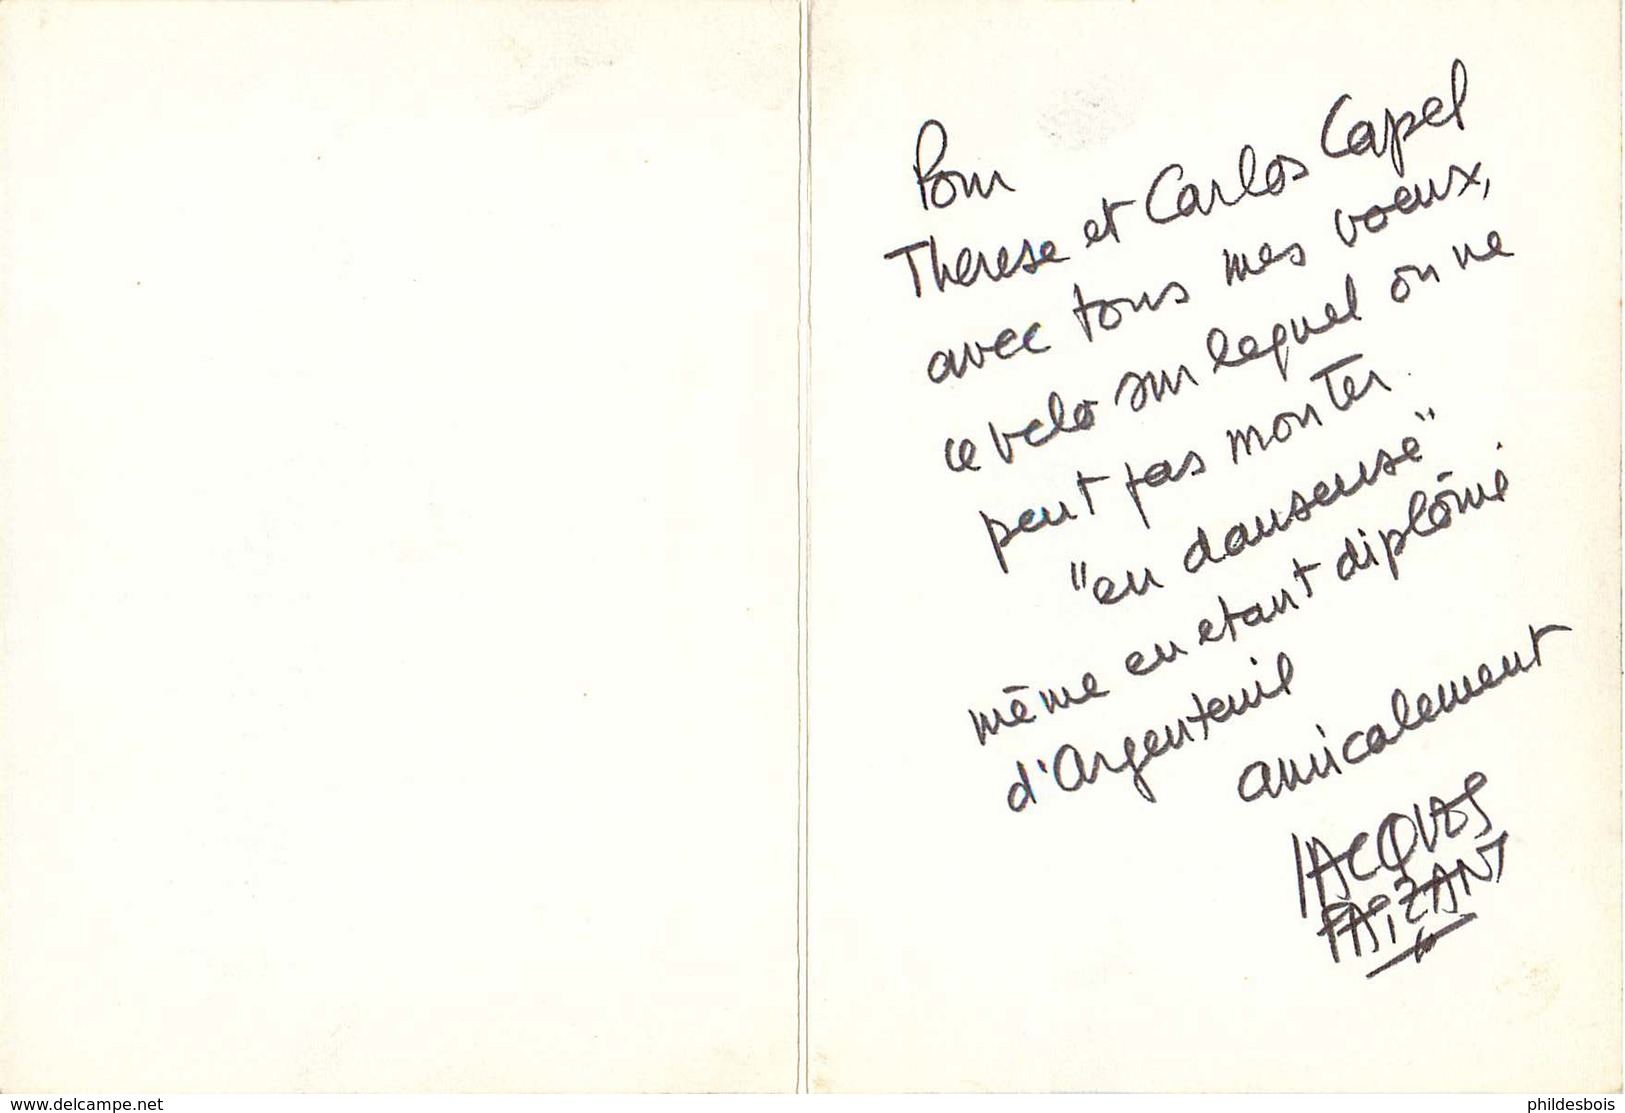 Pour
Therese et Carlos Capel
avec tous mes voeux,
ce velo sur lequel on ne
peut pas monter
"en danseuse"
même en etant diplômé
d'Argenteuil
amicalement
JACQUES
FAIZANT
www.delcampe.net
phildesbois